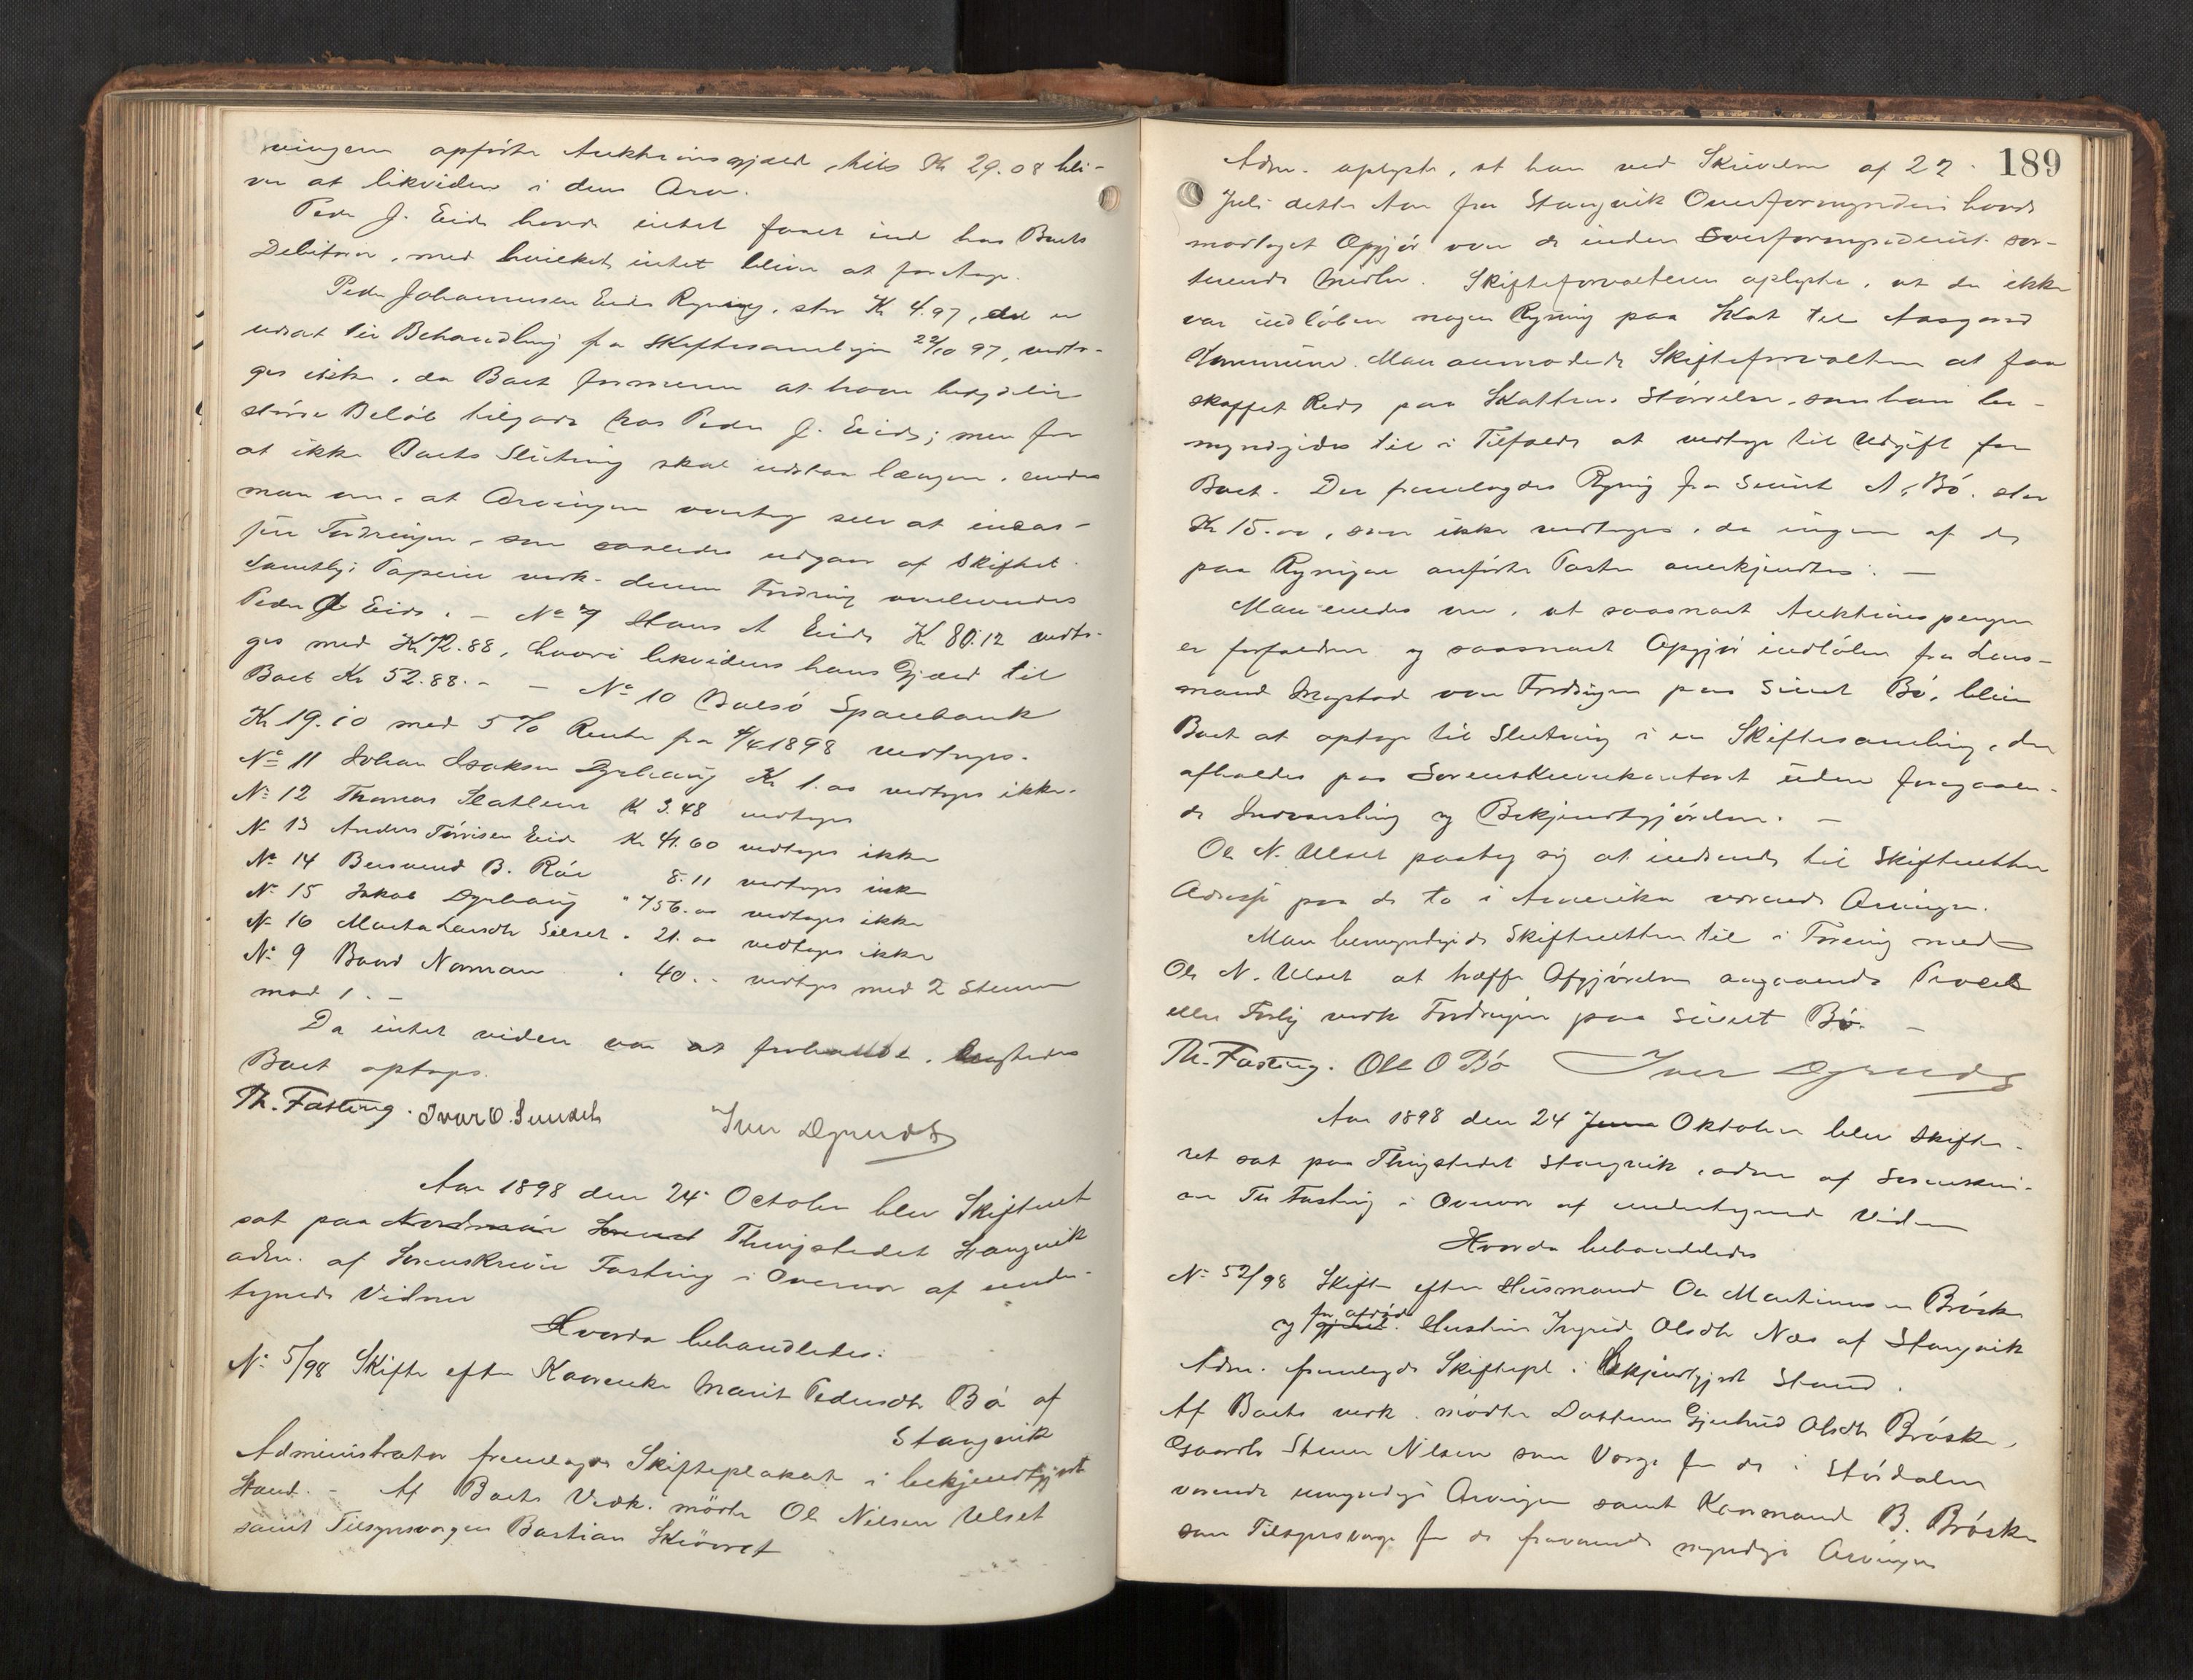 ningen opførte Auktionsgjæld, tils Kr 29.08 bli-
ver at likvidere i dens Arv.
Peder J. Eide havde intet faaet ind hos Boets
Debitorer, med hvilket intet bliver at foretage.
Peder Johannesen Eides Regning, stor Kr 4.97, der er
udsat til Behandling fra Skiftesamlingen 22/10 97, vedto-
ges ikke, da Boet formener at have betydelig
større Beløb tilgode hos Peder J. Eide; men for
at ikke Boets Slutning skal udstaa længere, enedes
man om, at Arvingerne overtog selv at incas-
sere Fordringen, som saaledes udgaar af Skiftet.
Samtlige Papirer vedk. denne Fordring overleveredes
Peder J Eide. - No 7 Hans A Eide Kr 80.12 vedto-
ges med Kr 72.88, hvori likvideres hans Gjæld til
Boet Kr 52.88. - - No 10 Bolsø Sparebank
Kr 19.10 med 5 % Rente fra 4/4 1898 vedtoges.
No 11 Johan Isaksen Dyrhaug Kr 1.00 vedtoges ikke.
No 12 Thomas Slatlem Kr 3.48 vedtoges
No 13 Anders Tørrisen Eide Kr 41.60 vedtoges ikke
No 14 Bersvend B. Røe 8.11 vedtoges ikke
No 15 Jakob Dyrhaug " 756.00 vedtoges ikke
No 16 Marta Larsdtr Silset " 21.00 vedtoges ikke
No 9 Baard Norman " 40.- vedtoges med 2 Stemmer
mod 1. -
Da intet videre var at forhandle,
Boet optoges.
Th. Fasting. Ivar O.
Aar 1898 den 24. October blev Skifteret
sat paa Nordmør Thingstedet Stangvik
adm. af Sorenskriver Fasting i Overvær af under-
tegnede Vidner
Hvorda behandledes:
No 5/98 Skifte efter Kaarenke Marit Pedersdtr Bø af
Stangvik
Administrator fremlagde Skifteplakat i bekjendtgjort
Stand. - Af Boets Vedk. mødte Ole Nilsen Ulset
samt Tilsynsvergen Bastian Skiøvret
189
Adm. oplyste, at han ved Skrivelse af 22.
Juli dette Aar fra Stangvik Overformynderi havde
modtaget Opgjør over de under Overformynderiet sor-
terende Midler. Skifteforvalteren oplyste, at der ikke
var indløben nogen Regning paa Skat til Aasgard
Kommune. Man anmodede Skifteforvalteren at faa
skaffet Rede paa Skattens Størrelse, som han be-
myndigedes til i Tilfælde at vedtage til Udgift for
Boet. Der fremlagdes Regning fra Sivert A. Bø, stor
Kr 15.00, som ikke vedtoges, da ingen af de
paa Regningen anførte Poster anerkjendtes. -
Man enedes om, at saasnart Auktionspengene
er forfaldne og saasnart Opgjør indløber fra Lens-
mand over Fordringen paa Sivert Bø, bliver
Boet at optage til Slutning i en Skiftesamling, der
afholdes paa Sorenskriverkontoret uden foregaaen-
de Indvarsling og Bekjendtgjørelse. -
Ole N. Ulset paatog sig at indsende til Skifteretten
Adresse paa de to i Amerika værende Arvinger.
Man bemyndigede Skifteretten til i Forening med
Ole N. Ulset at træffe Afgjørelse angaaende Proces
eller Forlig vedk Fordringen paa Sivert Bø. -
Th. Fasting. Ole O Bø
Aar 1898 den 24 Juni Oktober blev Skifte-
ret sat paa Thingstedet Stangvik, adm. af Sorenskri-
ver Th Fasting i Overvær af undertegnede Vidner
Hvorda behandledes
No 52/98 Skifte efter Husmand Ole Martinussen Brøske
og før afdøde Hustru Ingrid Olsdtr Næs af Stangvik
Adm. fremlagde Skiftepl. i bekjendtgjort Stand.
Af Boets vedk. mødte Datteren Gjertrud Olsdtr Brøske,
Gaardbr Stener Nilsen som Verge for de i Stördalen
værende umyndige Arvinger samt Kaarmand B. Brøske
som Tilsynsverge for de fraværende myndige Arvinger